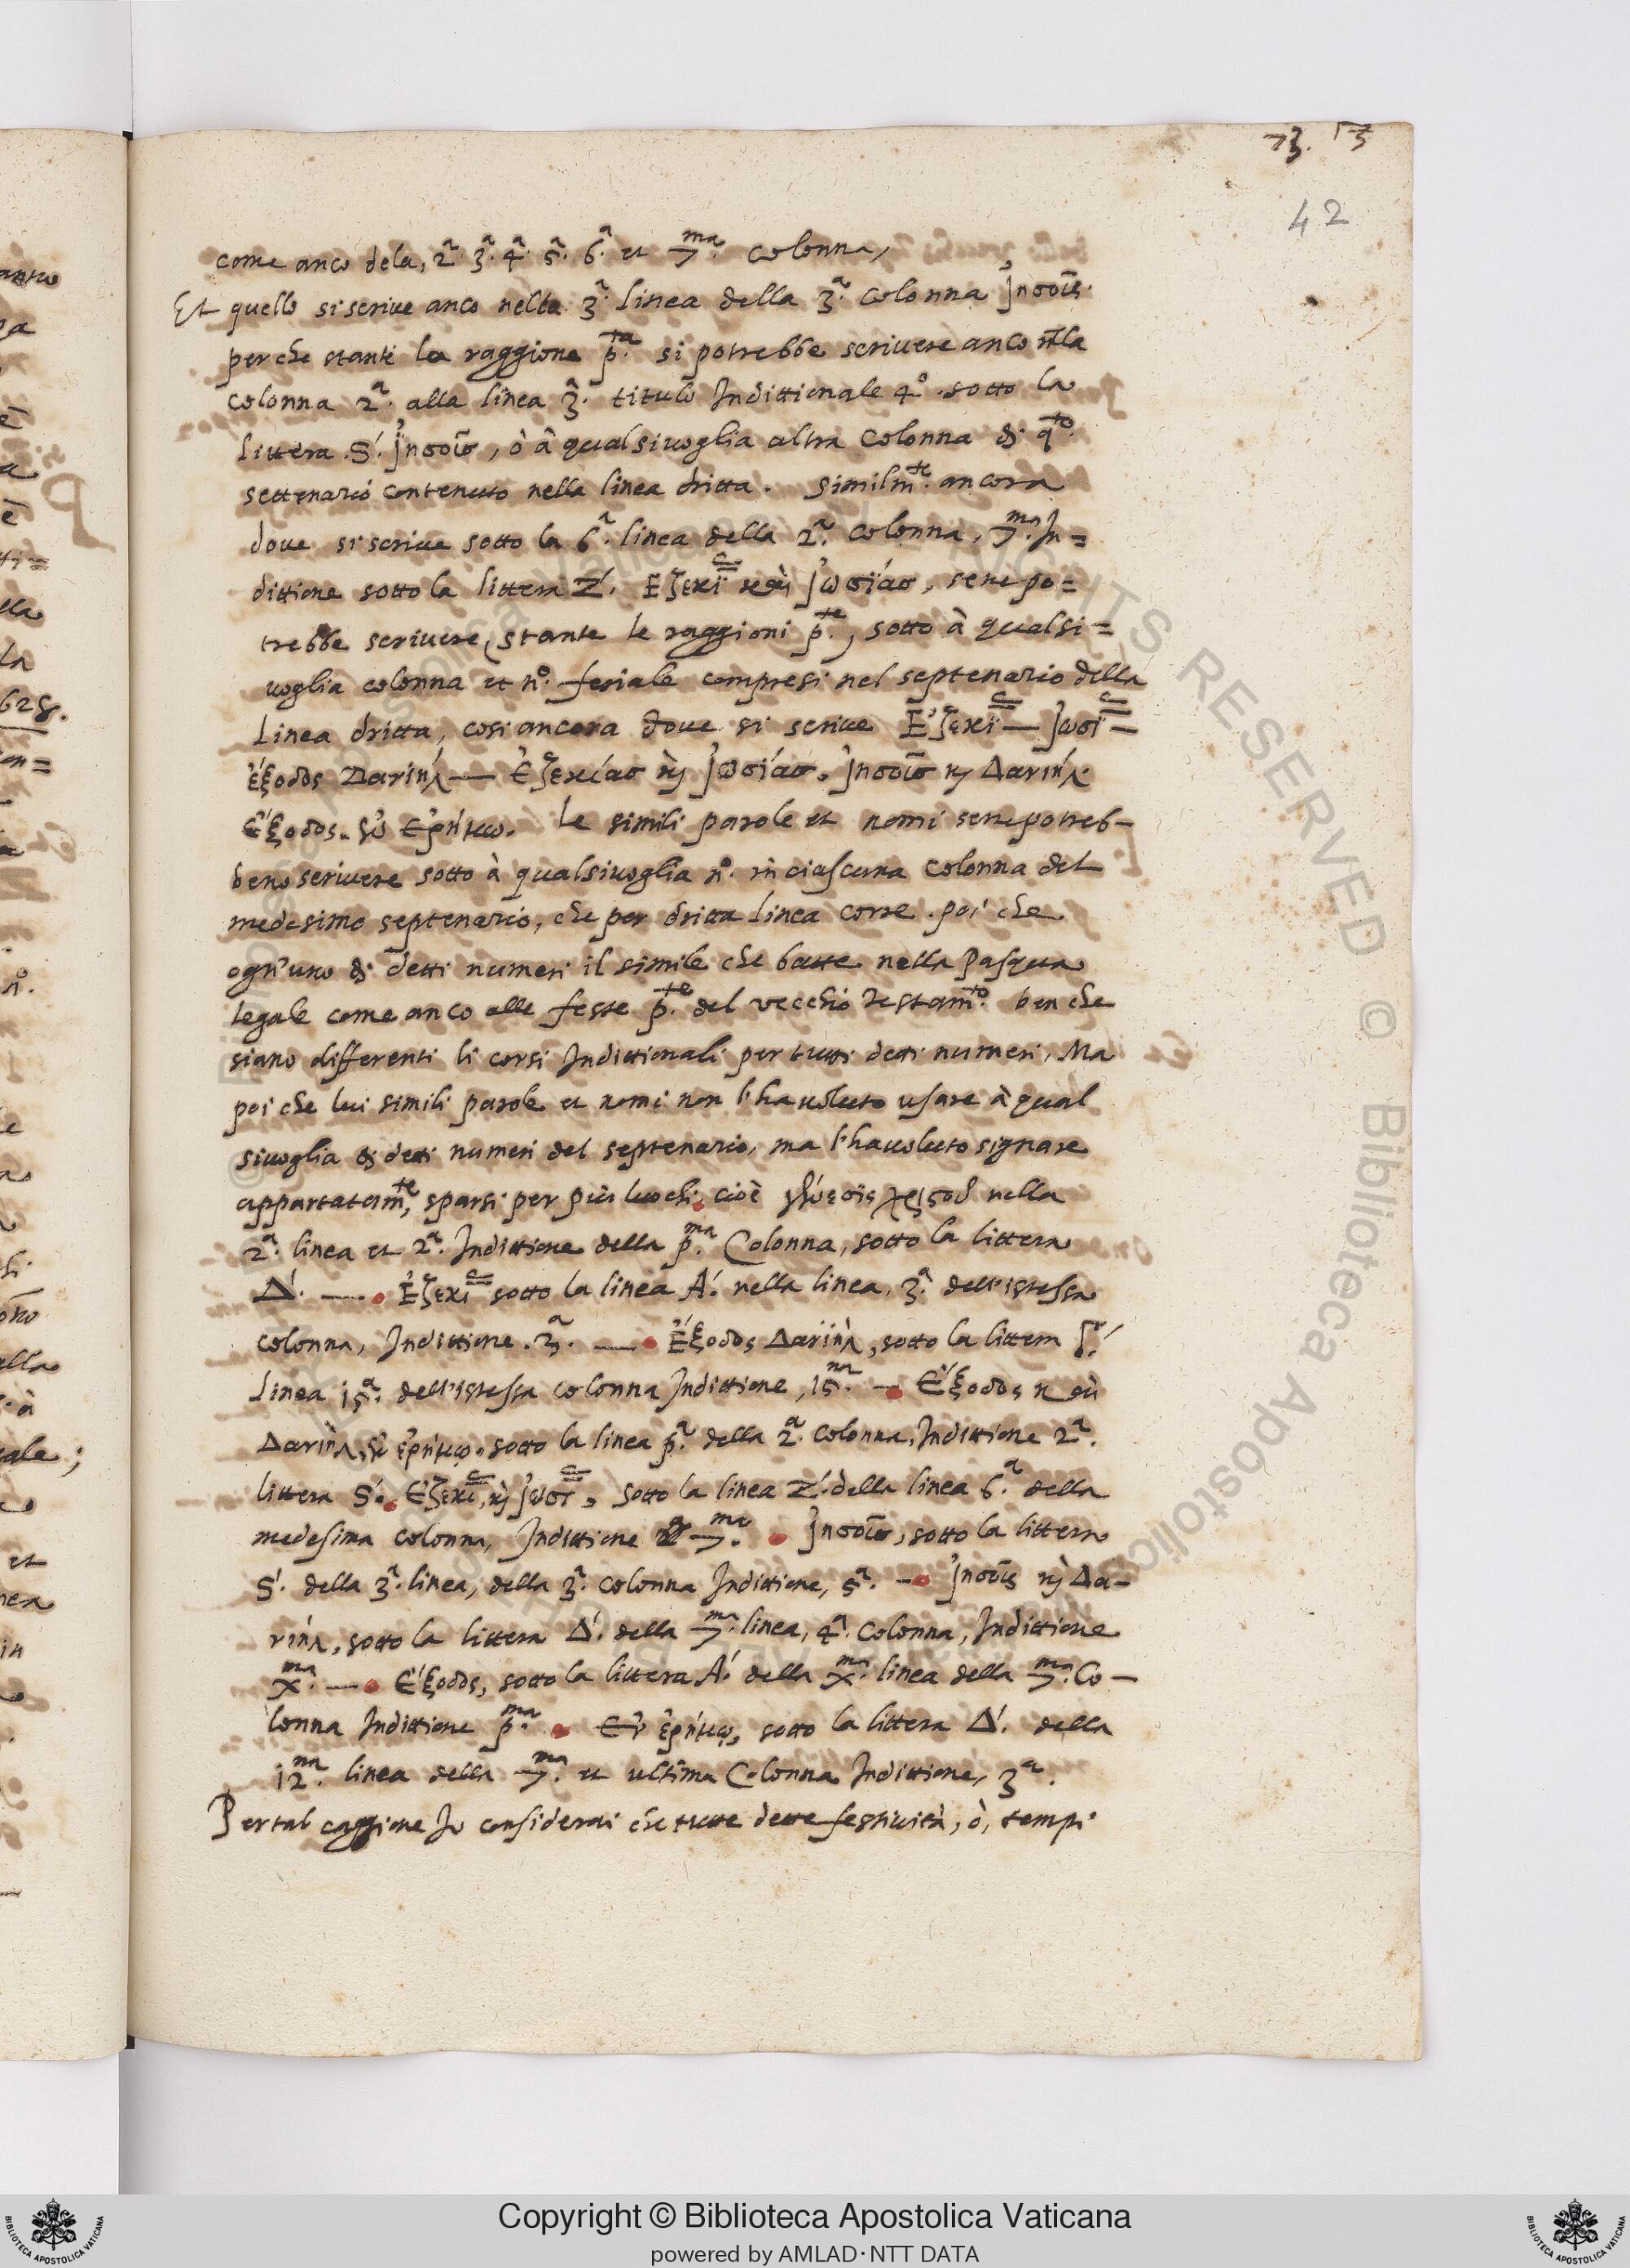 73. 73
42
come anco dela, 2ª. 3ª. 4ª. 5ª. 6ª. et 7ma. colonna,
Et quello si scriue anco nella 3ª. linea della 3ª. colonna Ἰησοῦς.
perche stanti la raggione p̄ta. si potrebbe scriuere anco nlla
colonna 2ª. alla linea 3ª. titulo Indittionale 4º. sotto la
littera .S'. Ἰησοῦσ, ò â qualsiuoglia altra colonna di q̄to.
settenario contenuto nella linea dritta. similmte. ancora
doue si scriue sotto la 6ª. linea della 2ª. colonna, 7ma. In=
dittione sotto la littera Z'. Εζεκϊ καὶ Ἰωσϊάσ, se ne po=
trebbe scriuere, stante le raggioni p̄te., sotto à qualsi=
uoglia colonna et nº. feriale compresi nel septenario della
Linea dritta, cosi ancora doue si scriue Ἐζεκϊ — Ἰωσϊ —
ἔξοδος Δανιήλ — Ἐζεκίασ κὶ Ἰωσίασ, Ἰησοῦσ κὶ Δανιήλ.
Ἔξοδος. ἐν ἐρήμω. le simili parole et nomi se ne potreb-
beno scriuere sotto à qualsiuoglia nº. in ciascuna colonna del
medesimo septenario, che per dritta linea corre. poi che
ogn'uno di detti numeri il simile che batte nella Pasqua
legale come anco alle feste p̄te. del vecchio testamto. ben che
siano differenti li corsi Indittionali per tutti detti numeri, Ma
poi che lui simili parole et nomi non l'ha uoluto usare à qual
siuoglia di detti numeri del septenario, ma l'ha uoluto signare
appartatamte, sparsi per più luochi, cioè
nella
2ª. linea et 2ª. Indittione della p̄ma. Colonna, sotto la littera
Δ'. — Ἐζεκϊ sotto la linea A'. nella linea, 3ª. dell'istessa
colonna, Indittione .3ª. — Ἔξοδος Δανιὴλ, sotto la littera Γ'.
Linea 15ª. dell'istessa colonna Indittione, 15ma. — Ἔξοδος καὶ
Δανιὴλ, ἐν ἐρήμω. sotto la linea p̄ª. della 2ª. colonna, Indittione 2ª.
littera S'. Ἐζεκϊ, κὶ Ἰωσϊ, sotto la linea Z'. della linea 6ª. della
medesima colonna, Indittione 7ma. Ἰησοῦσ, sotto la littera
S'. della 3ª. linea, della 3ª. colonna Indittione, 5ª. — Ἰησοῦς κὶ Δα-
νιήλ, sotto la littera Δ'. della 7ma. linea, 4ª. Colonna, Indittione
Xma. — Ἔξοδος, sotto la littera A'. della Xma. linea della 7ma. Co-
lonna Indittione p̄ma. Ἐν ἐρήμῳ, sotto la littera Δ'. della
12ma. linea della 7ma. et ultima Colonna Indittione, 3ª.
Per tal caggione Io considerai che tutte dette festiuità, ò, tempi
Copyright © Biblioteca Apostolica Vaticana
powered by AMLAD·NTT DATA